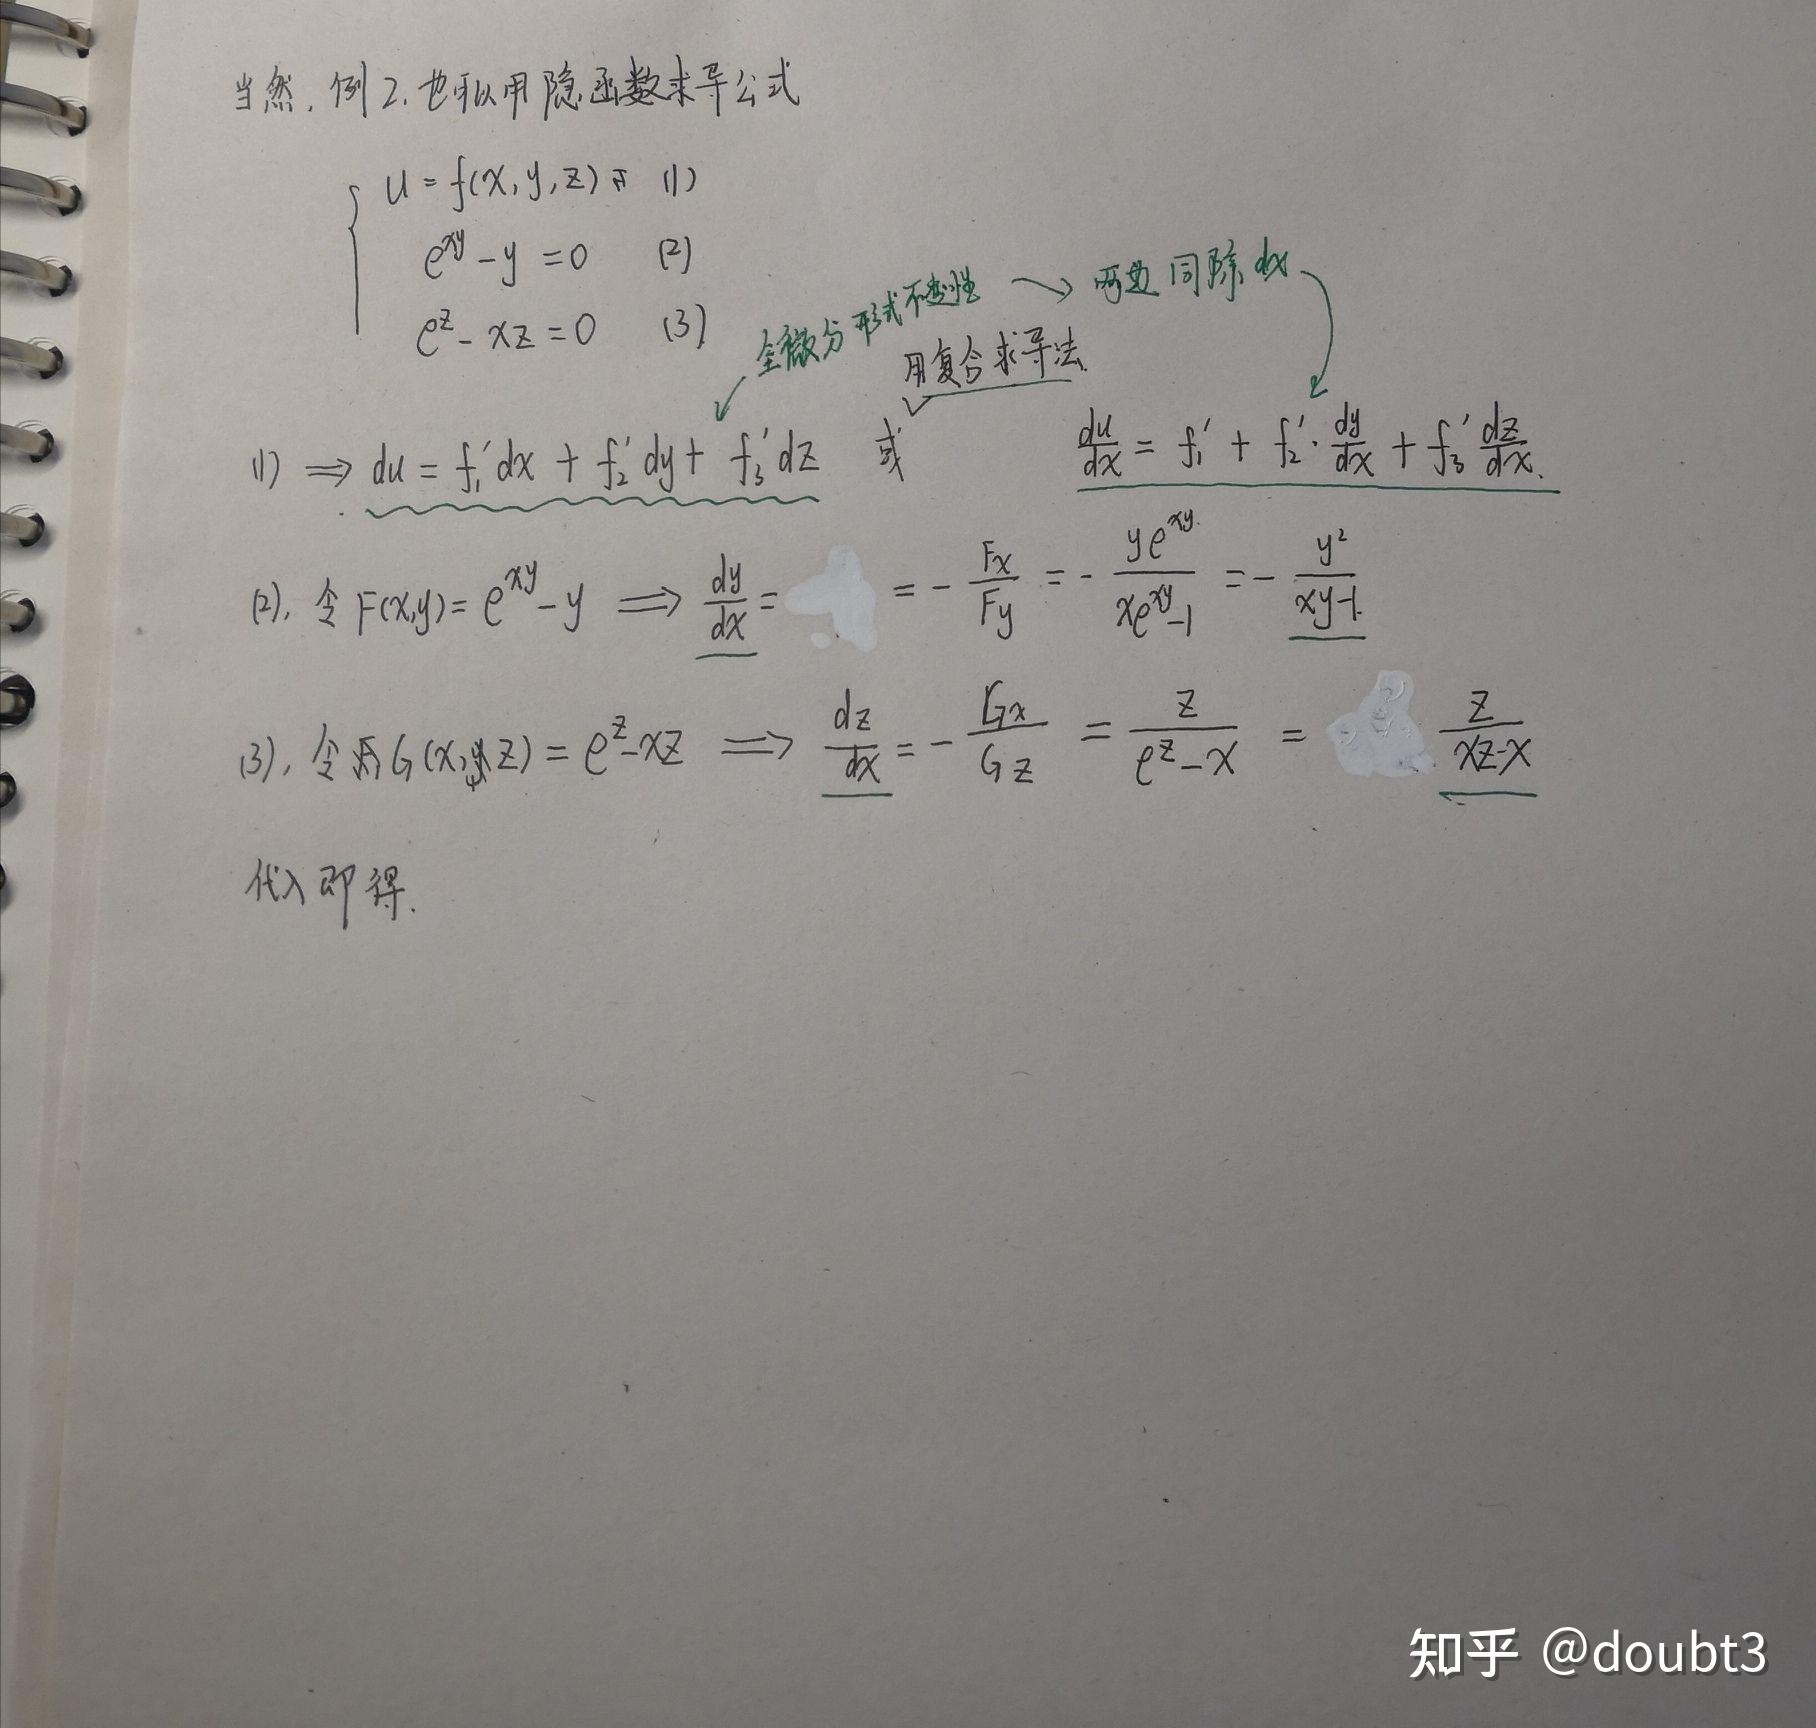 当然，例2.也可以用隐函数求导公式
u = f(x, y, z) (1)
e^{xy} - y = 0 (2)
e^z - xz = 0 (3)
全微分形式不变性 → 两边同除dx
用复合求导法
(1) ⇒ du = f₁'dx + f₂'dy + f₃'dz 或 du/dx = f₁' + f₂'·dy/dx + f₃' dz/dx.
(2). 令F(x,y) = e^{xy} - y ⇒ dy/dx = = - Fx/Fy = - ye^{xy}/(xe^{xy}-1) = - y²/(xy-1)
(3). 令 G(x, z) = e^z - xz ⇒ dz/dx = - Gx/Gz = z/(e^z - x) = z/(xz-x)
代入即得.
知乎 @doubt3